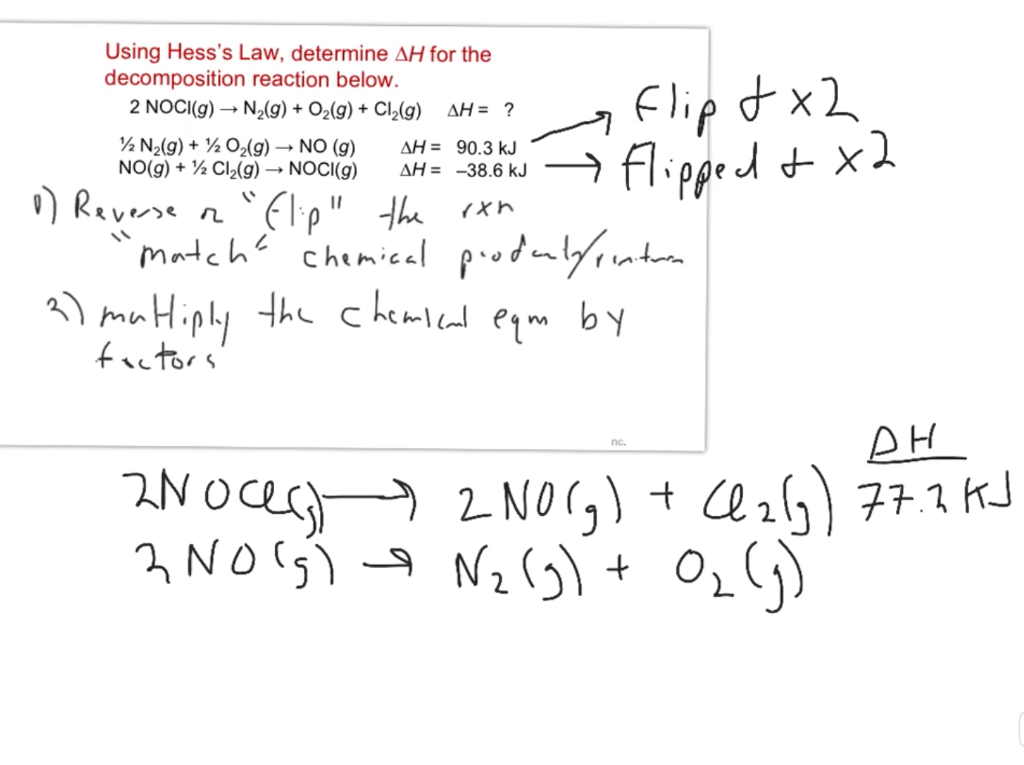 Using Hess's Law, determine ΔH for the
decomposition reaction below.
2 NOCl(g) → N₂(g) + O₂(g) + Cl₂(g) ΔH = ?
½ N₂(g) + ½ O₂(g) → NO (g) ΔH = 90.3 kJ
NO(g) + ½ Cl₂(g) → NOCl(g) ΔH = –38.6 kJ
Flip & x2
Flipped & x2
1) Reverse or "flip" the rxn
"match" chemical
2) multiply the chemical eqn by
factors
nc.
ΔH
2NOCl(g) → 2NO(g) + Cl₂(g) 77.2 KJ
2NO(g) → N₂(g) + O₂(g)